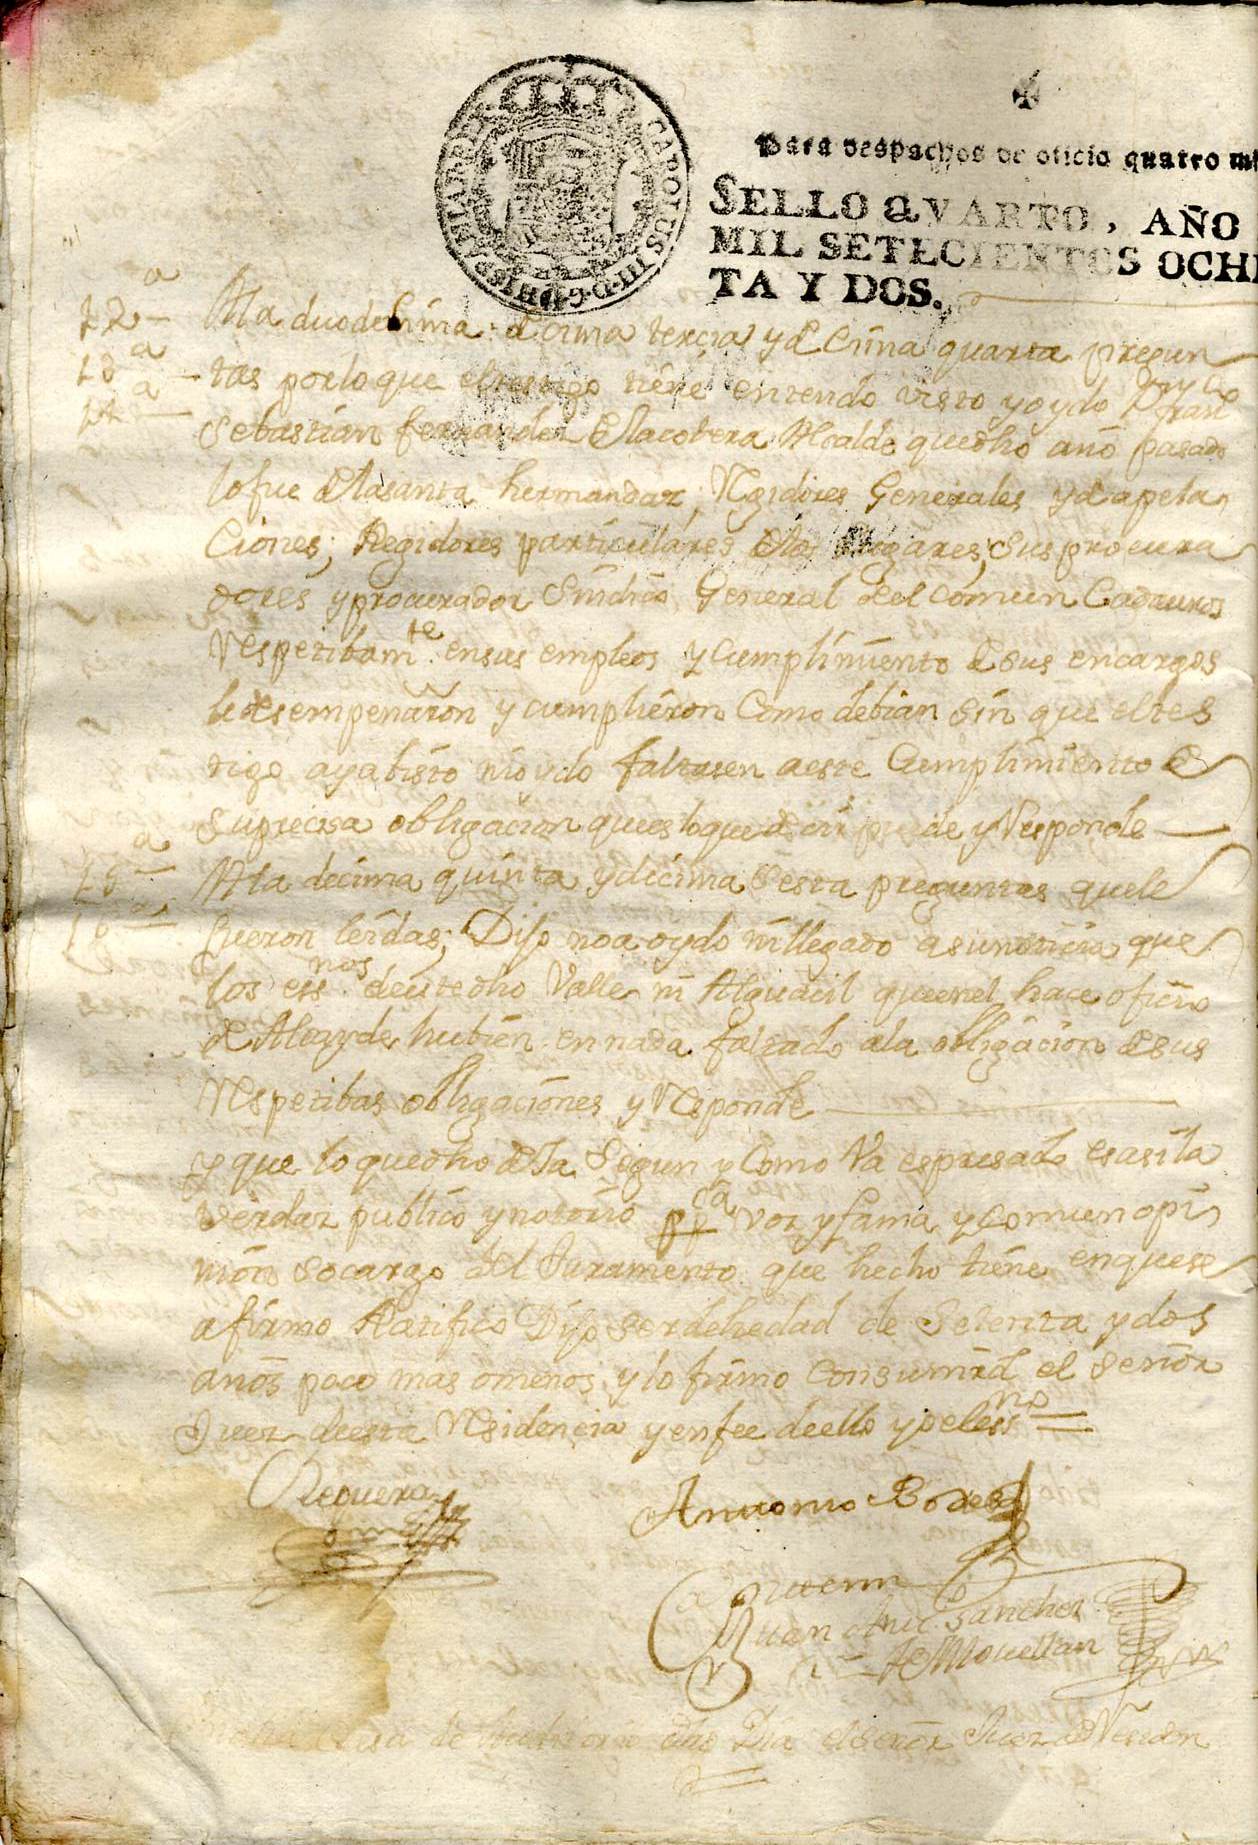 CAROLUS III D G HISPANIAR REX
Para despachos de oficio quatro m
SELLO QVARTO, AÑO
MIL SETECIENTOS OCHE
TA Y DOS.
12ª A la duodesima: decima tercia y decima quarta pregun
13ª tas por lo que el testigo tiene entendido visto y oydo Dn franco
14ª Sebastian fernandez de la Alcalde que dho año pasado
lo fue de la santa hermandaz; Regidores Generales y de apela
Ciones; Regidores particulares de los lugares; sus procura
dores y procurador Sindico General del comun Cada uno
Respetibamte en sus empleos y cumplimiento de sus encargos
le desempeñaron y cumplieron Como debian sin que el tes
tigo aya bisto ni oydo faltasen a este Cumplimiento de
su precisa obligacion que es lo que decir puede y Responde
15ª A la decima quinta y decima Sesta preguntas que le
16ª fueron leidas; Dijo no a oydo ni llegado a su noticia que
los essnos de este dho Valle ni Alguacil que en el hace oficio
de Alcayde hubien en nada faltado a la obligacion de sus
Respetibas obligaciones y Responde
y que lo que dho deja Segun y Como Va espresado es asi la
verdaz publico y notorio ppca voz y fama y comun opi
nion so cargo del Juramento que hecho tiene en que se
afirmo Ratifico Dijo ser de hedad de Setenta y dos
años poco mas o menos y lo firmo con su mrd el señor
Juez de esta Residencia y en fee de ello yo el essno
Requera
Antonio Bores
Ante mi
Juan Antt Sanchez
de Movellan
de dho Dia el señor Juez de Residen